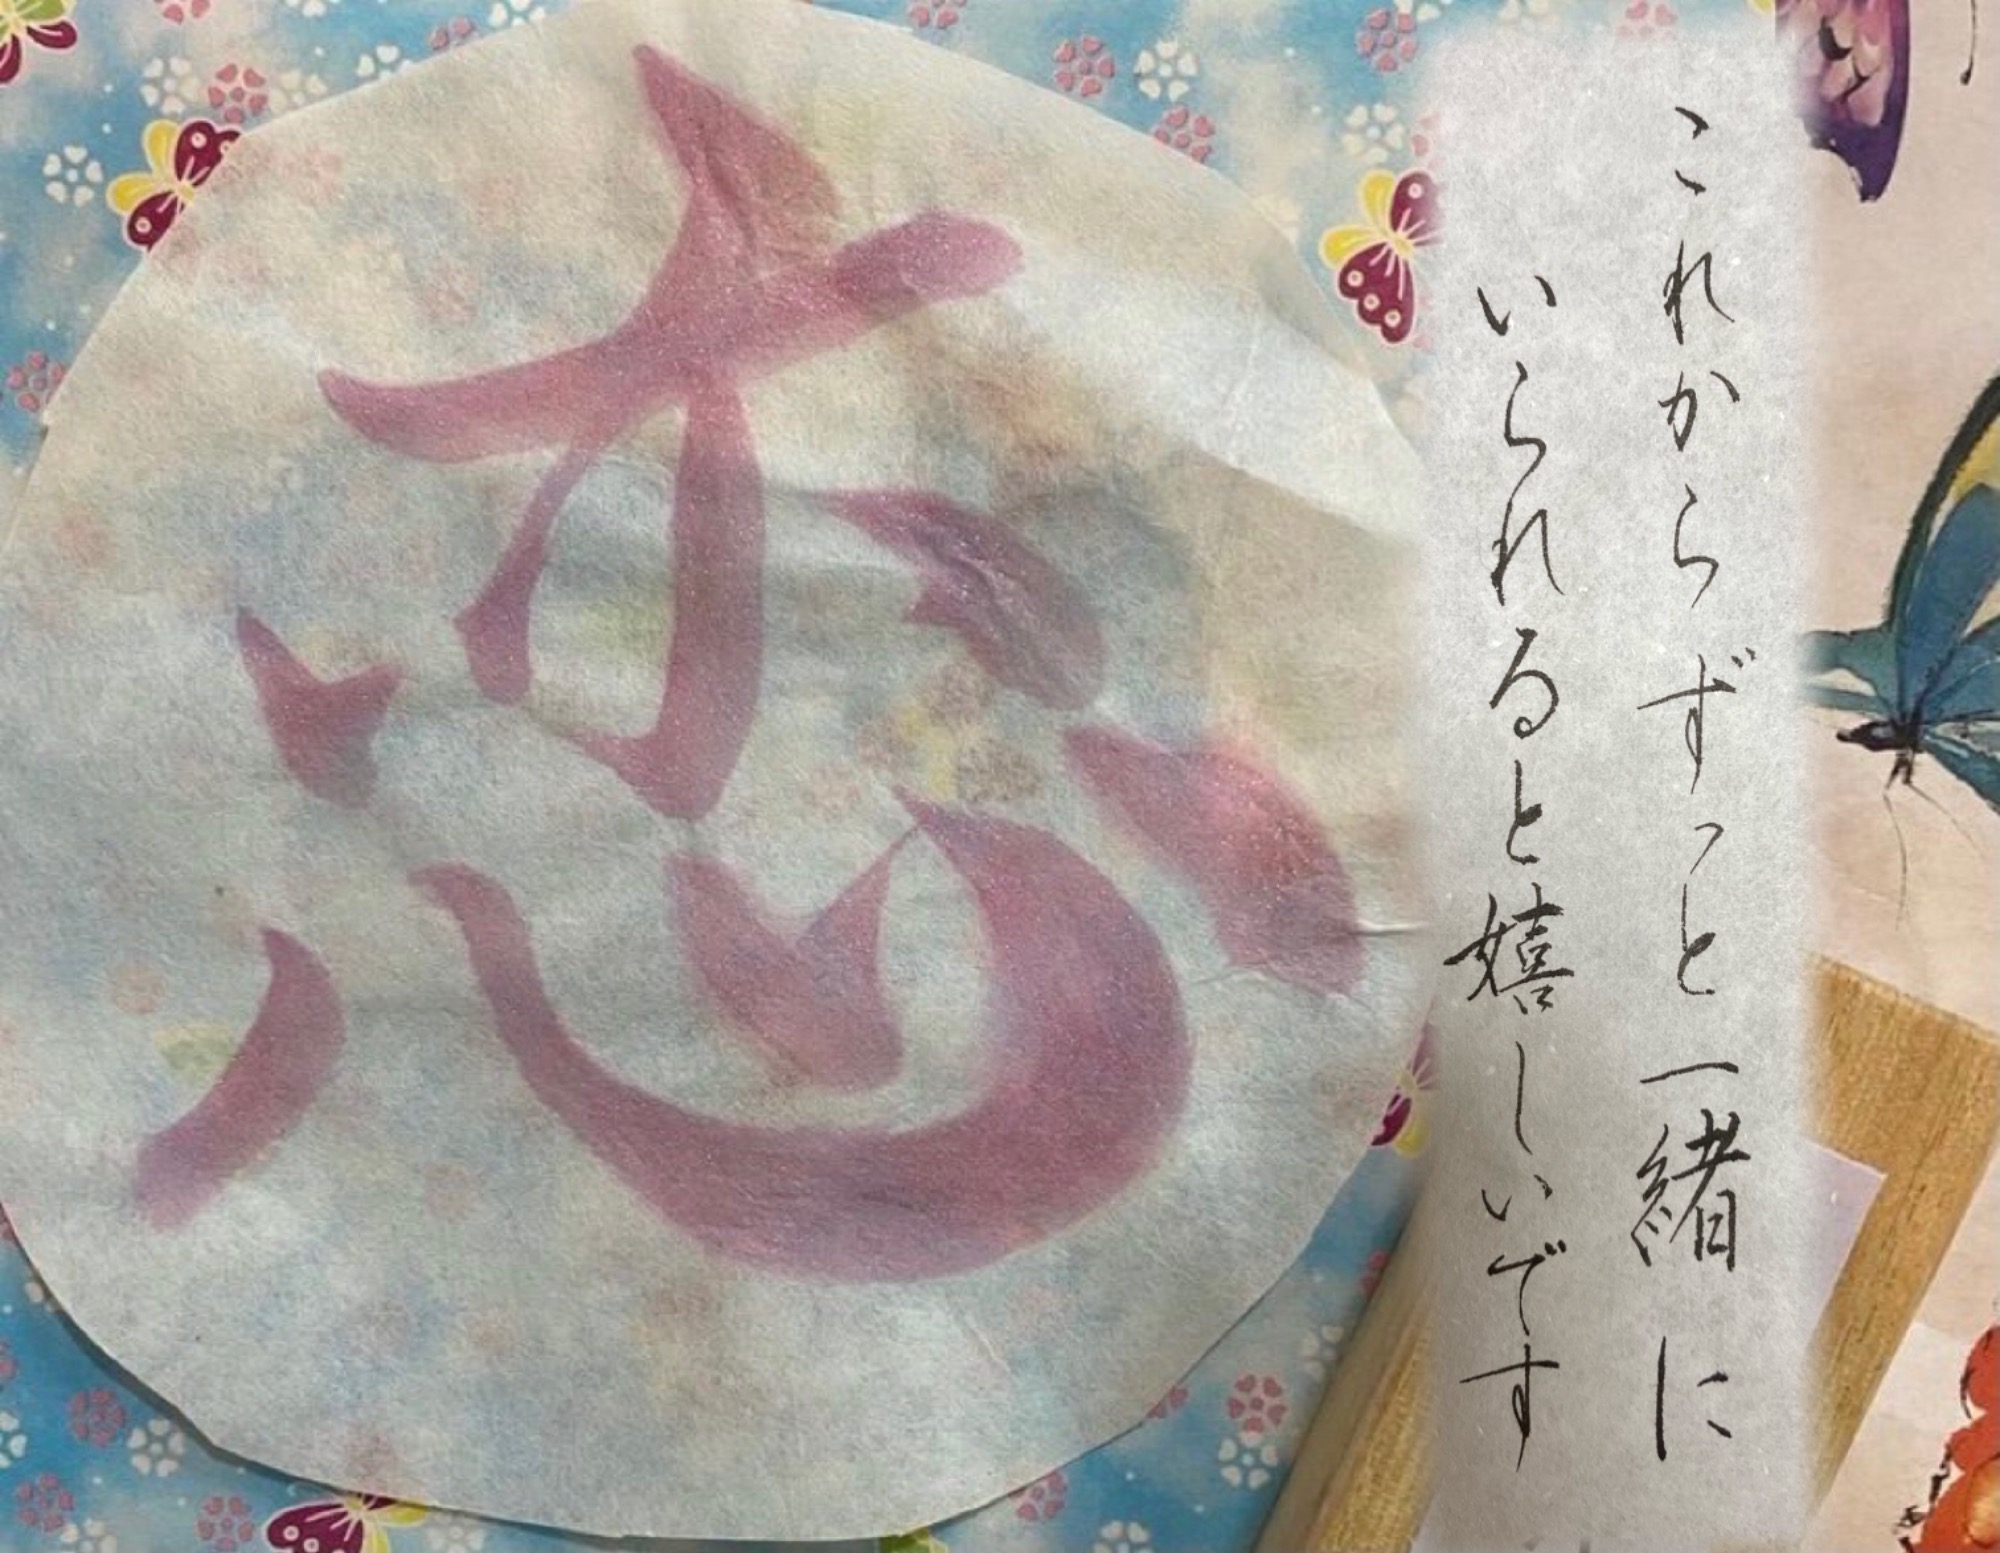 恋
これからずっと一緒に
いられると嬉しいです